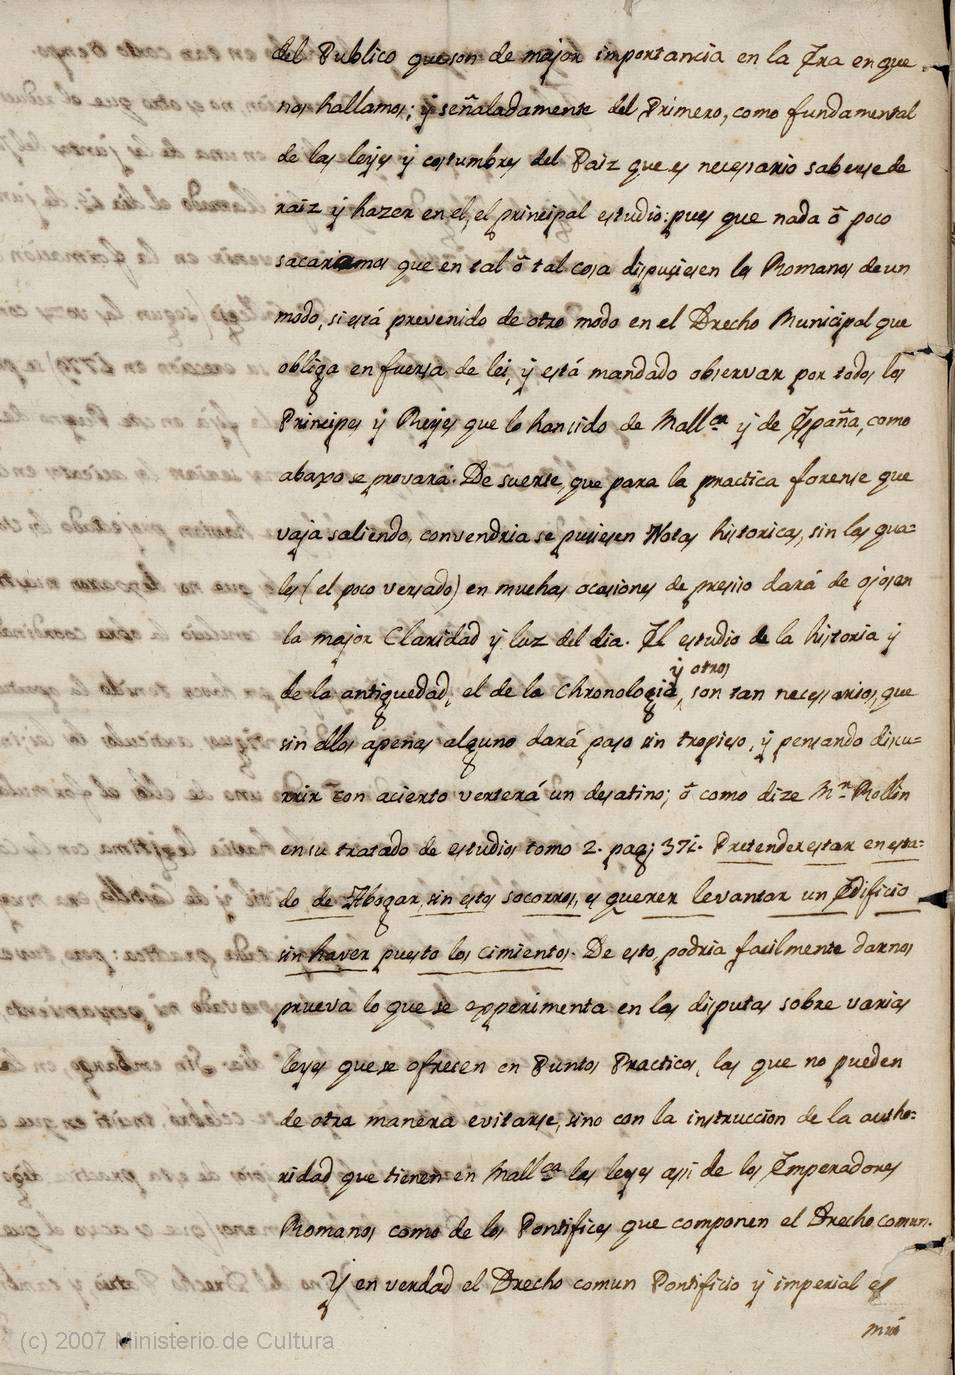 del Publico que son de major importancia en la Era en que
nos hallamos; ÿ señaladamente del Primero, como fundamental
de las leyes ÿ costumbres del Paiz que es necessario saberse de
raiz ÿ hazer en el, el principal estudio: pues que nada ô poco
sacariamos que en tal ô tal cosa dispusiesen los Romanos de un
modo, si está prevenido de otro modo en el Drecho Municipal que
obliga en fuersa de lei, ÿ está mandado observar por todos los
Principes ÿ Reyes que lo han sido de Mallca ÿ de España, como
abaxo se provará. De suerte, que para la practica forense que
vaja saliendo, convendria se pusiesen Notas historicas, sin las qua=
les (el poco versado) en muchas ocasiones de presiso dará de ojos en
la major Claridad ÿ luz del dia. El estudio de la historia ÿ
ÿ otros
de la antiguedad, el de la Chronologia, son tan necessarios, que
sin ellos apenas alguno dará paso sin tropieso, ÿ pensando discu=
rrir con acierto verterá un desatino; ô como dize Mr. Rollin
en su tratado de estudios tomo 2. pag; 371. Pretender estar en esta=
do de Abogar, sin estos socorros, es querer levantar un Edificio
sin haver puesto los cimientos. De esto, podria facilmente darnos
prueva lo que se experimenta en las disputas sobre varias
leyes que se ofresen en Puntos Practicos, las que no pueden
de otra manera evitarse, sino con la instruccion de la autho=
ridad que tienen en Mallca las leyes asi de los Emperadores
Romanos como de los Pontifices que componen el Drecho comun.
Y en verdad el Drecho comun Pontificio ÿ imperial es
mui
(c) 2007 Ministerio de Cultura